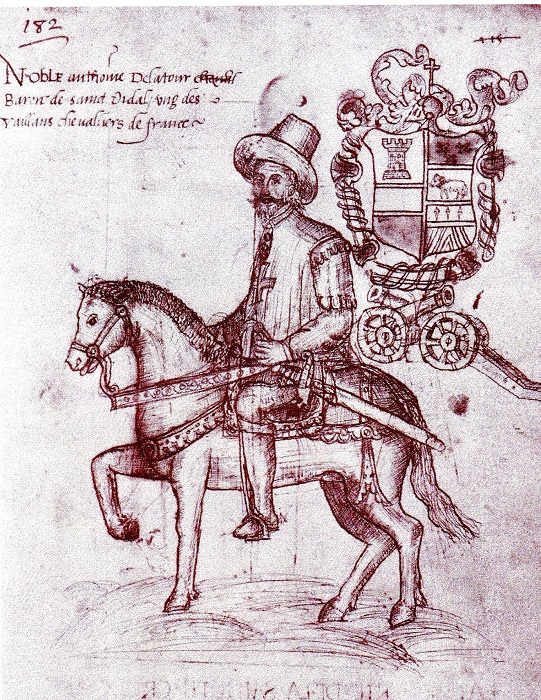 182
Noble anthoine Delatour
Baron de sainct Vidal ung des
vaillans chevaliers de france